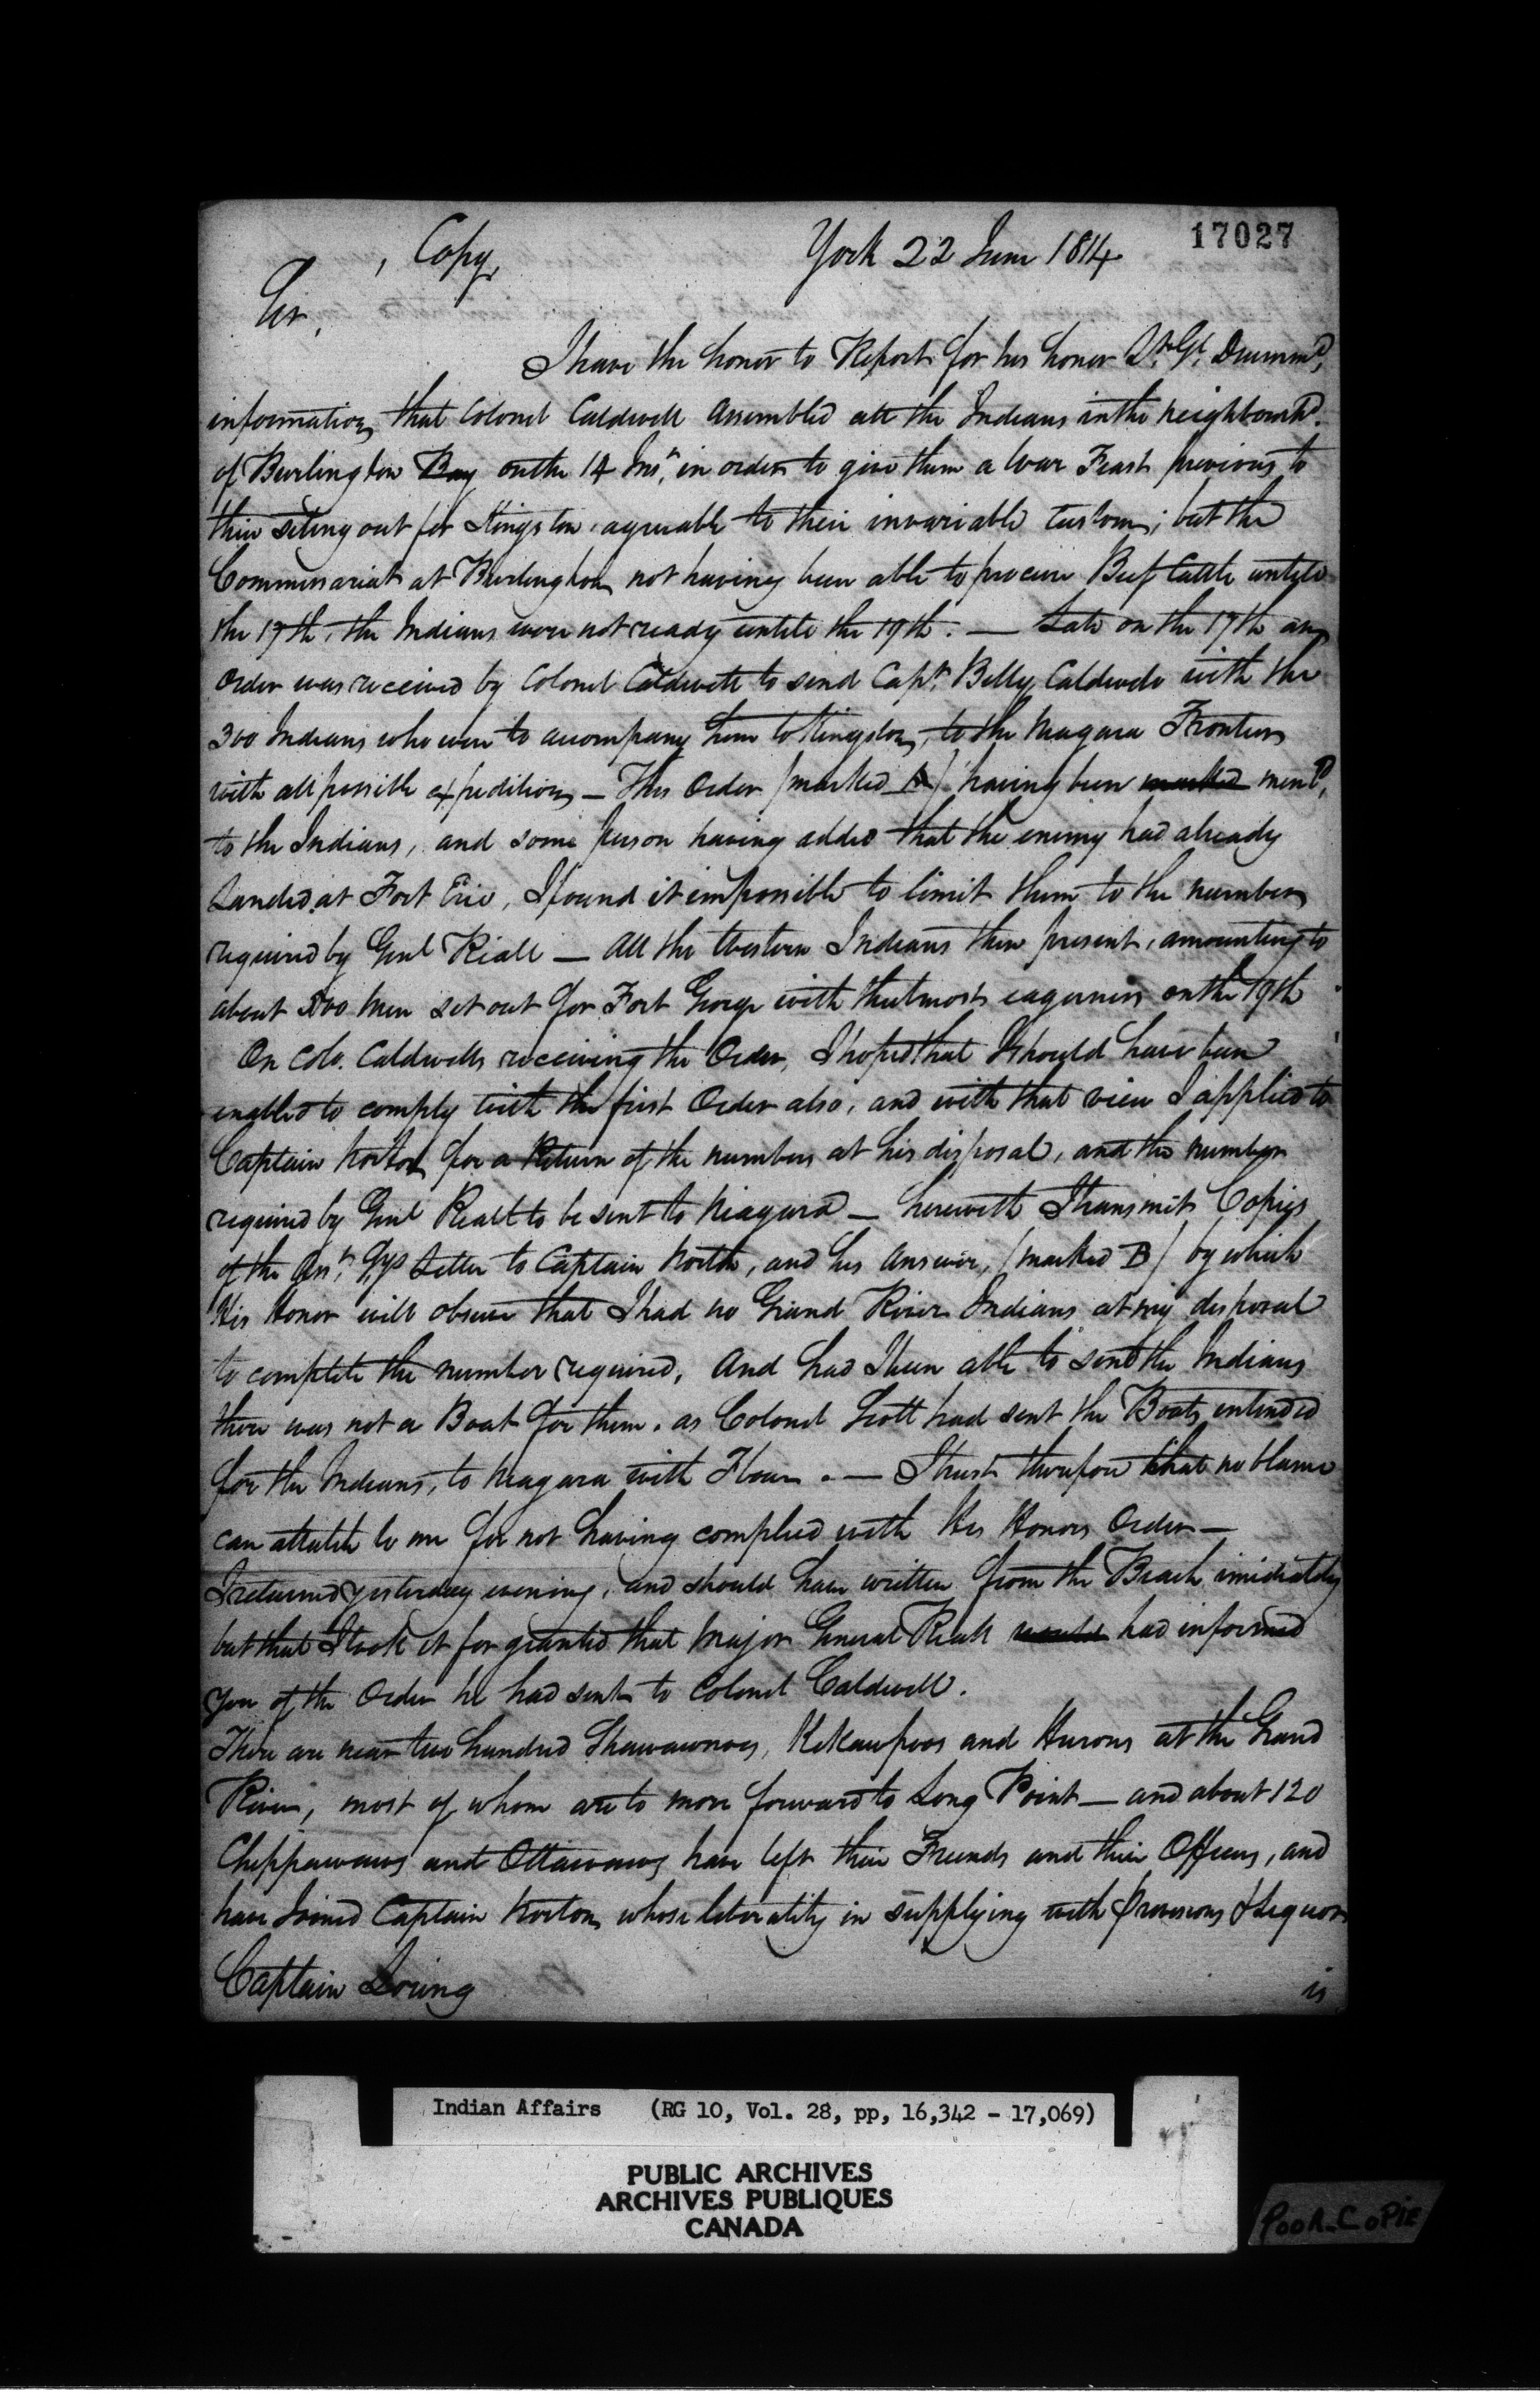 17027
Copy York 22 June 1814
Sir,
I have the honor to Report for his honor Lt. Gl. Drummd,
information that Colonel Caldwell assembled all the Indians in the neighbourhd.
of Burlington Bay on the 14 Inst, in order to give them a War Feast previous to
their seting out for Kingston, agreeable to their invariable Custom; but the
Commissariat at Burlington not having been able to procure Beef Cattle untill
the 17th, the Indians were not ready untill the 19th. — Late on the 17th an
order was received by Colonel Caldwell to send Capt. Billy Caldwell with the
300 Indians who were to accompany him to Kingston, to the Niagara Frontier
with all possible expedition — This Order (marked A) having been marked mentd,
to the Indians, and some person having added that the enemy had already
Landed at Fort Erie, I found it impossible to limit them to the number
required by Genl Riall — All the Western Indians then present, amounting to
about 500 Men set out for Fort George with the utmost eagerness on the 19th
On Colo. Caldwells receiving the Order, I hoped that I should have been
enabled to comply with the first Order also, and with that view I applied to
Captain Norton for a Return of the numbers at his disposal, and the number
required by Genl Riall to be sent to Niagara — herewith I transmit Copies
of the Letter to Captain Norton, and his Answer, (marked B) by which
His Honor will observe that I had no Grand River Indians at my disposal
to complete the number required, And had I been able to send the Indians
there was not a Boat for them, as Colonel Scott had sent the Boats intended
for the Indians, to Niagara with Flour. — I trust therefore that no blame
can attatch to me for not having complied with His Honors Order —
I returned yesterday evening, and should have written from the Beach imidiately
but that I took it for granted that Major General Riall would had informed
you of the Order he had sent to Colonel Caldwell.
There are near two hundred Shawawnoes, Kikaupoos and Hurons at the Grand
River, most of whom are to move forward to Long Point — and about 120
Chippawaws and Ottawaws have left their Freinds and their Officers, and
have Joined Captain Norton, whose liberality in supplying with Provisions & Liquor
Captain Loring is
Indian Affairs (RG 10, Vol. 28, pp, 16,342 - 17,069)
PUBLIC ARCHIVES
ARCHIVES PUBLIQUES
CANADA
POOR COPIE